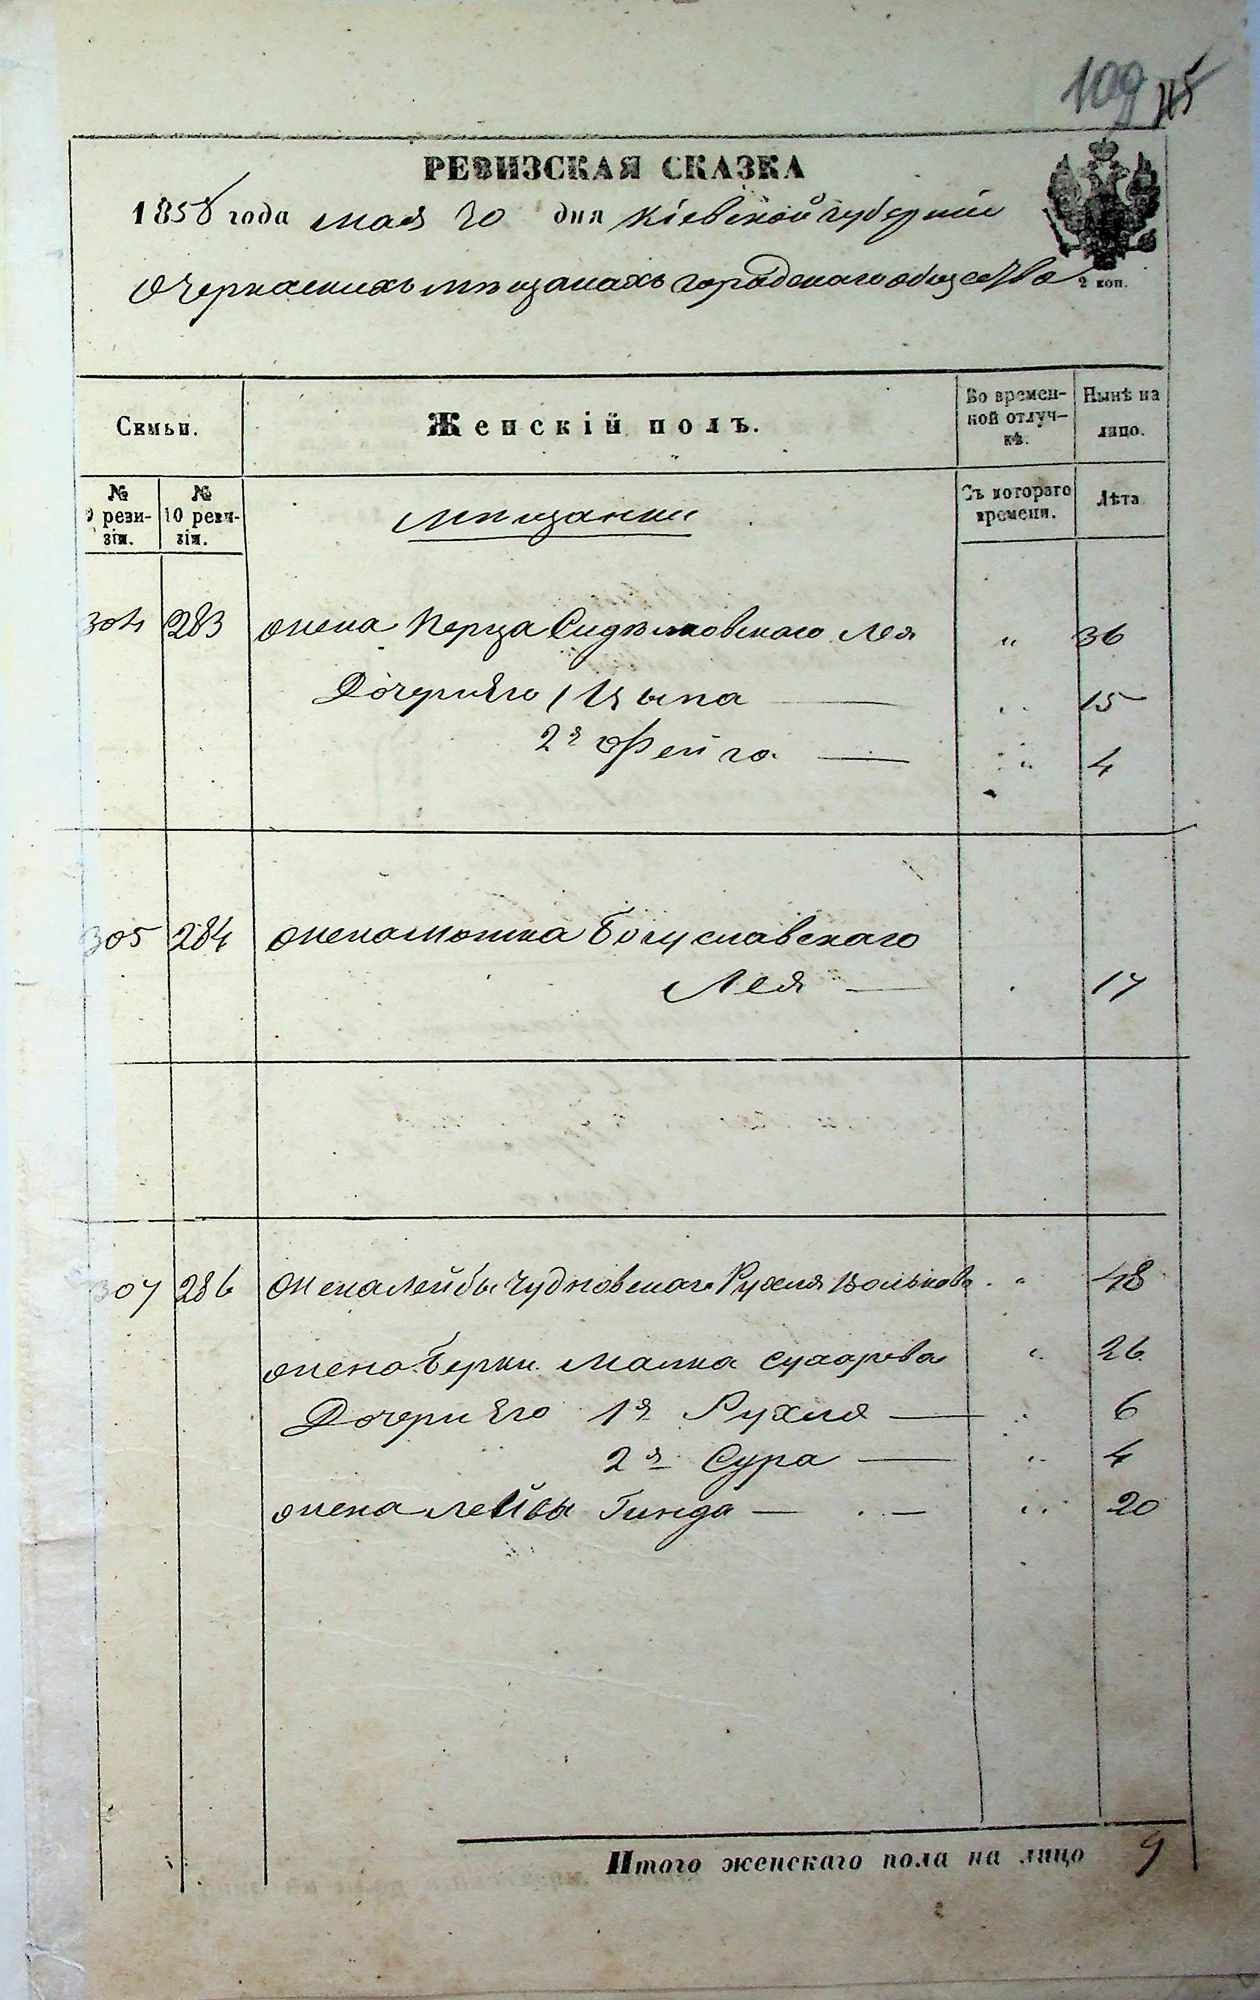 109 115
РЕВИЗСКАЯ СКАЗКА
1858 года мая 20 дня Кіевской губерніи
О Черкаскихъ мѣщанахъ городскаго общества
2 коп.
Семьи.
Женскій полъ.
Во времен-
ной отлуч-
кѣ.
Нынѣ на
лицо.
№
9 реви-
зіи.
№
10 реви-
зіи.
мѣщанки
Съ котораго
времени.
Лѣта
304 283 жена Перца Лея " 36
Дочери его 1 Цыпа — " 15
2я Фейга — " 4
305 284 жена Мошка Богуславскаго
Лея — 17
307 286 жена Лейбы Чудновскаго Рухля Волькова " 48
жена Берки Малка Сухарева " 26
Дочери его 1я Рухля — " 6
2я Сура — " 4
жена Лейбы Гинда — — " 20
Итого женскаго пола на лицо 9